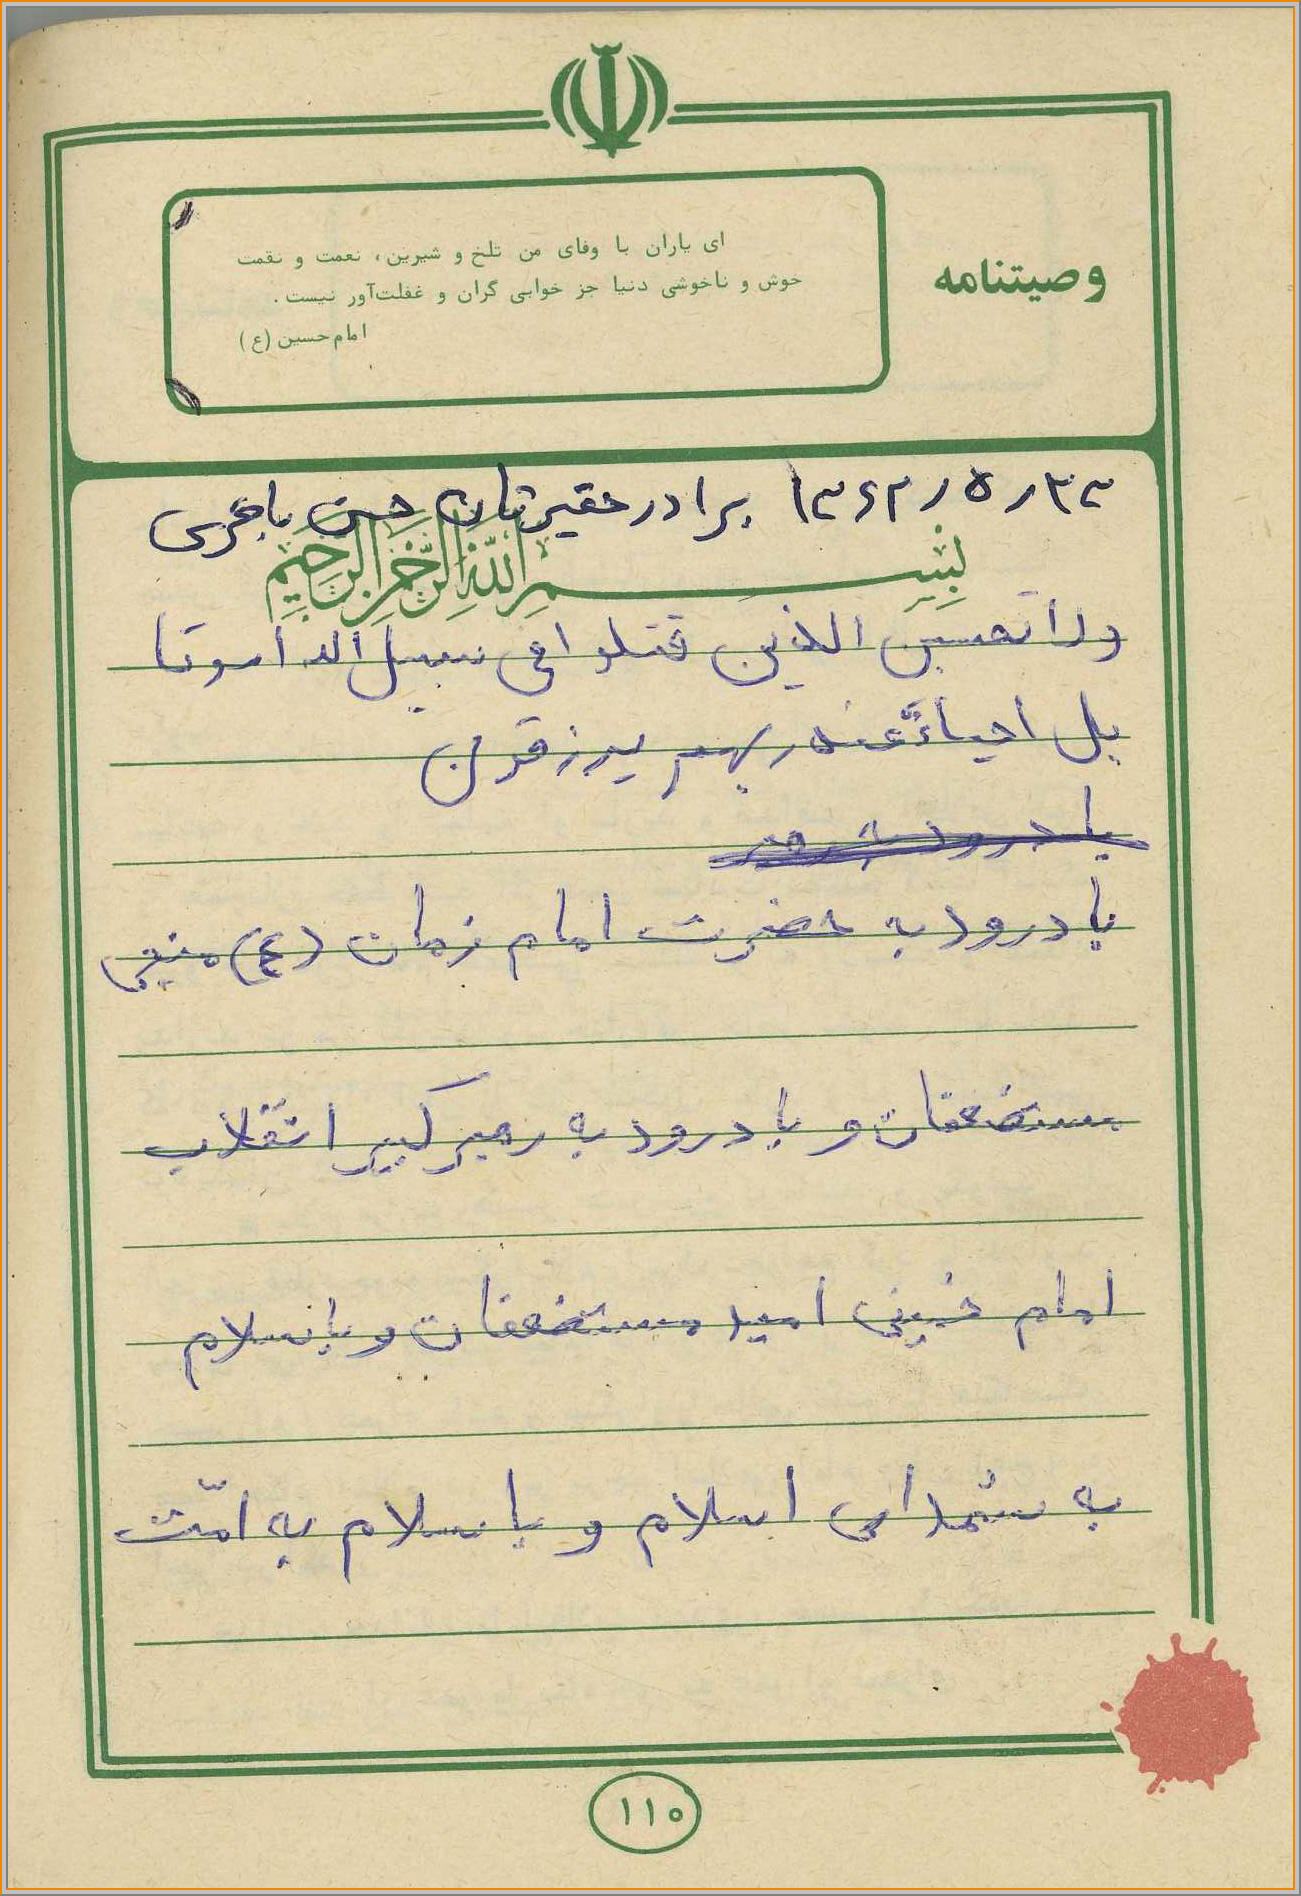 وصیتنامه
ای یاران با وفای من تلخ و شیرین، نعمت و نقمت
خوش و ناخوشی دنیا جز خوابی گران و غفلت‌آور نیست.
امام حسین (ع)
۱۳۶۲/۵/۲۳ برادر حقیرتان حسن
بسم الله الرحمن الرحیم
ولا تحسبن الذین قتلوا فی سبیل الله اموتا
بل احیاءٌ عند ربهم یرزقون
با درود به
با درود به حضرت امام زمان (ع) منجی
مستضعفان و با درود به رهبر کبیر انقلاب
امام خمینی امید مستضعفان و با سلام
به شهدای اسلام و با سلام به امّت
۱۱۰